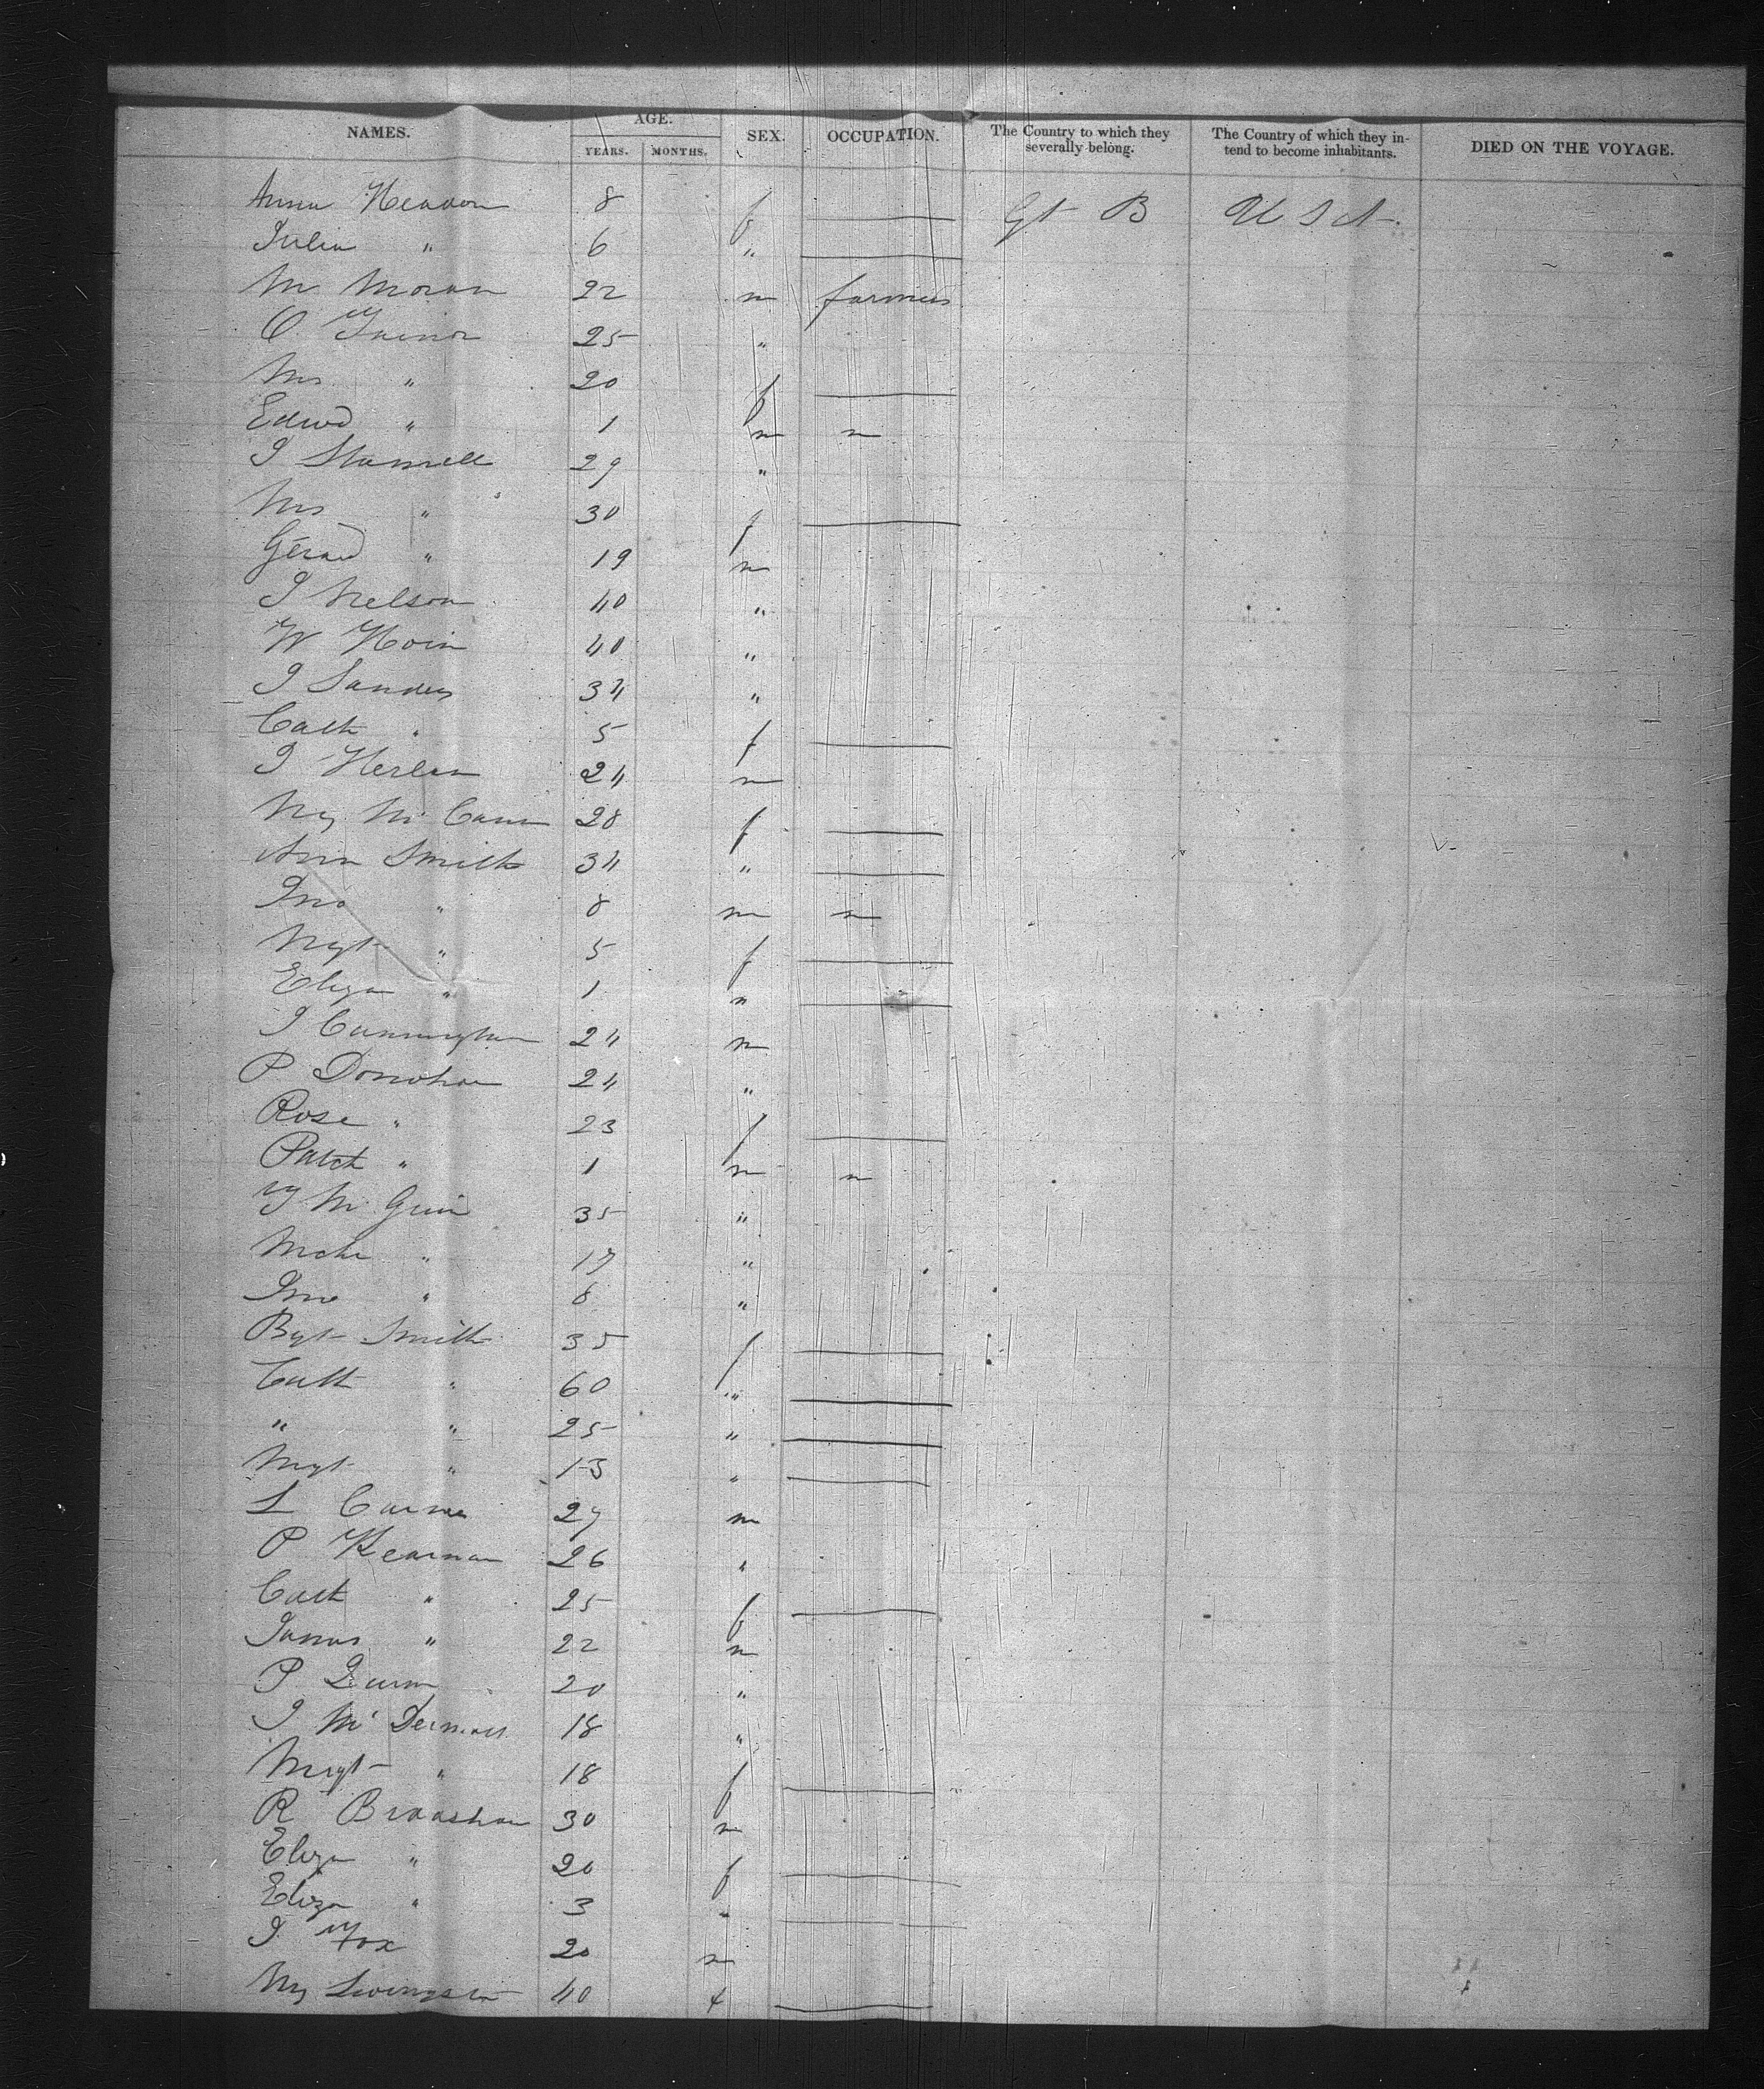 NAMES. AGE. SEX. OCCUPATION. The Country to which they severally belong. The Country of which they intend to become inhabitants. DIED ON THE VOYAGE.
YEARS. MONTHS.
Anna Headon 8 f — Gt B U S A.
Julia " 6 " —
M Moran 22 m farmers
O. 25 "
Mrs " 20 f —
Edwd " 1 m n
J 29 "
Mrs " 30 f —
Gerard " 19 m
J Nelson 40 "
W 40 "
J Sanders 34 "
Cath " 5 f —
J 24 m
My Mc Cann 28 f —
Ann Smith 34 " —
Jno " 8 m n
Mgt " 5 f —
Eliza " 1 " —
J Cunningham 24 m
P Donohoe 24 "
Rose " 23 f —
Patck " 1 m n
35 "
" 17 "
Jno " 8 "
Bgt Smith 35 f —
Cath " 60 " —
" " 25 " —
Mgt " 13 " —
L 27 m
P Kearnan 26 "
Cath " 25 f —
James " 22 m
P Dunn 20 "
J Mc Dermott 18 "
Mgt " 18 f —
R Bradshaw 30 m
Eliza " 20 f —
Eliza " 3 " —
J Fox 20 m
My Livingston 40 f —